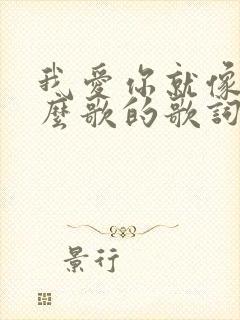 我爱你就像
麼歌的歌詞
景行